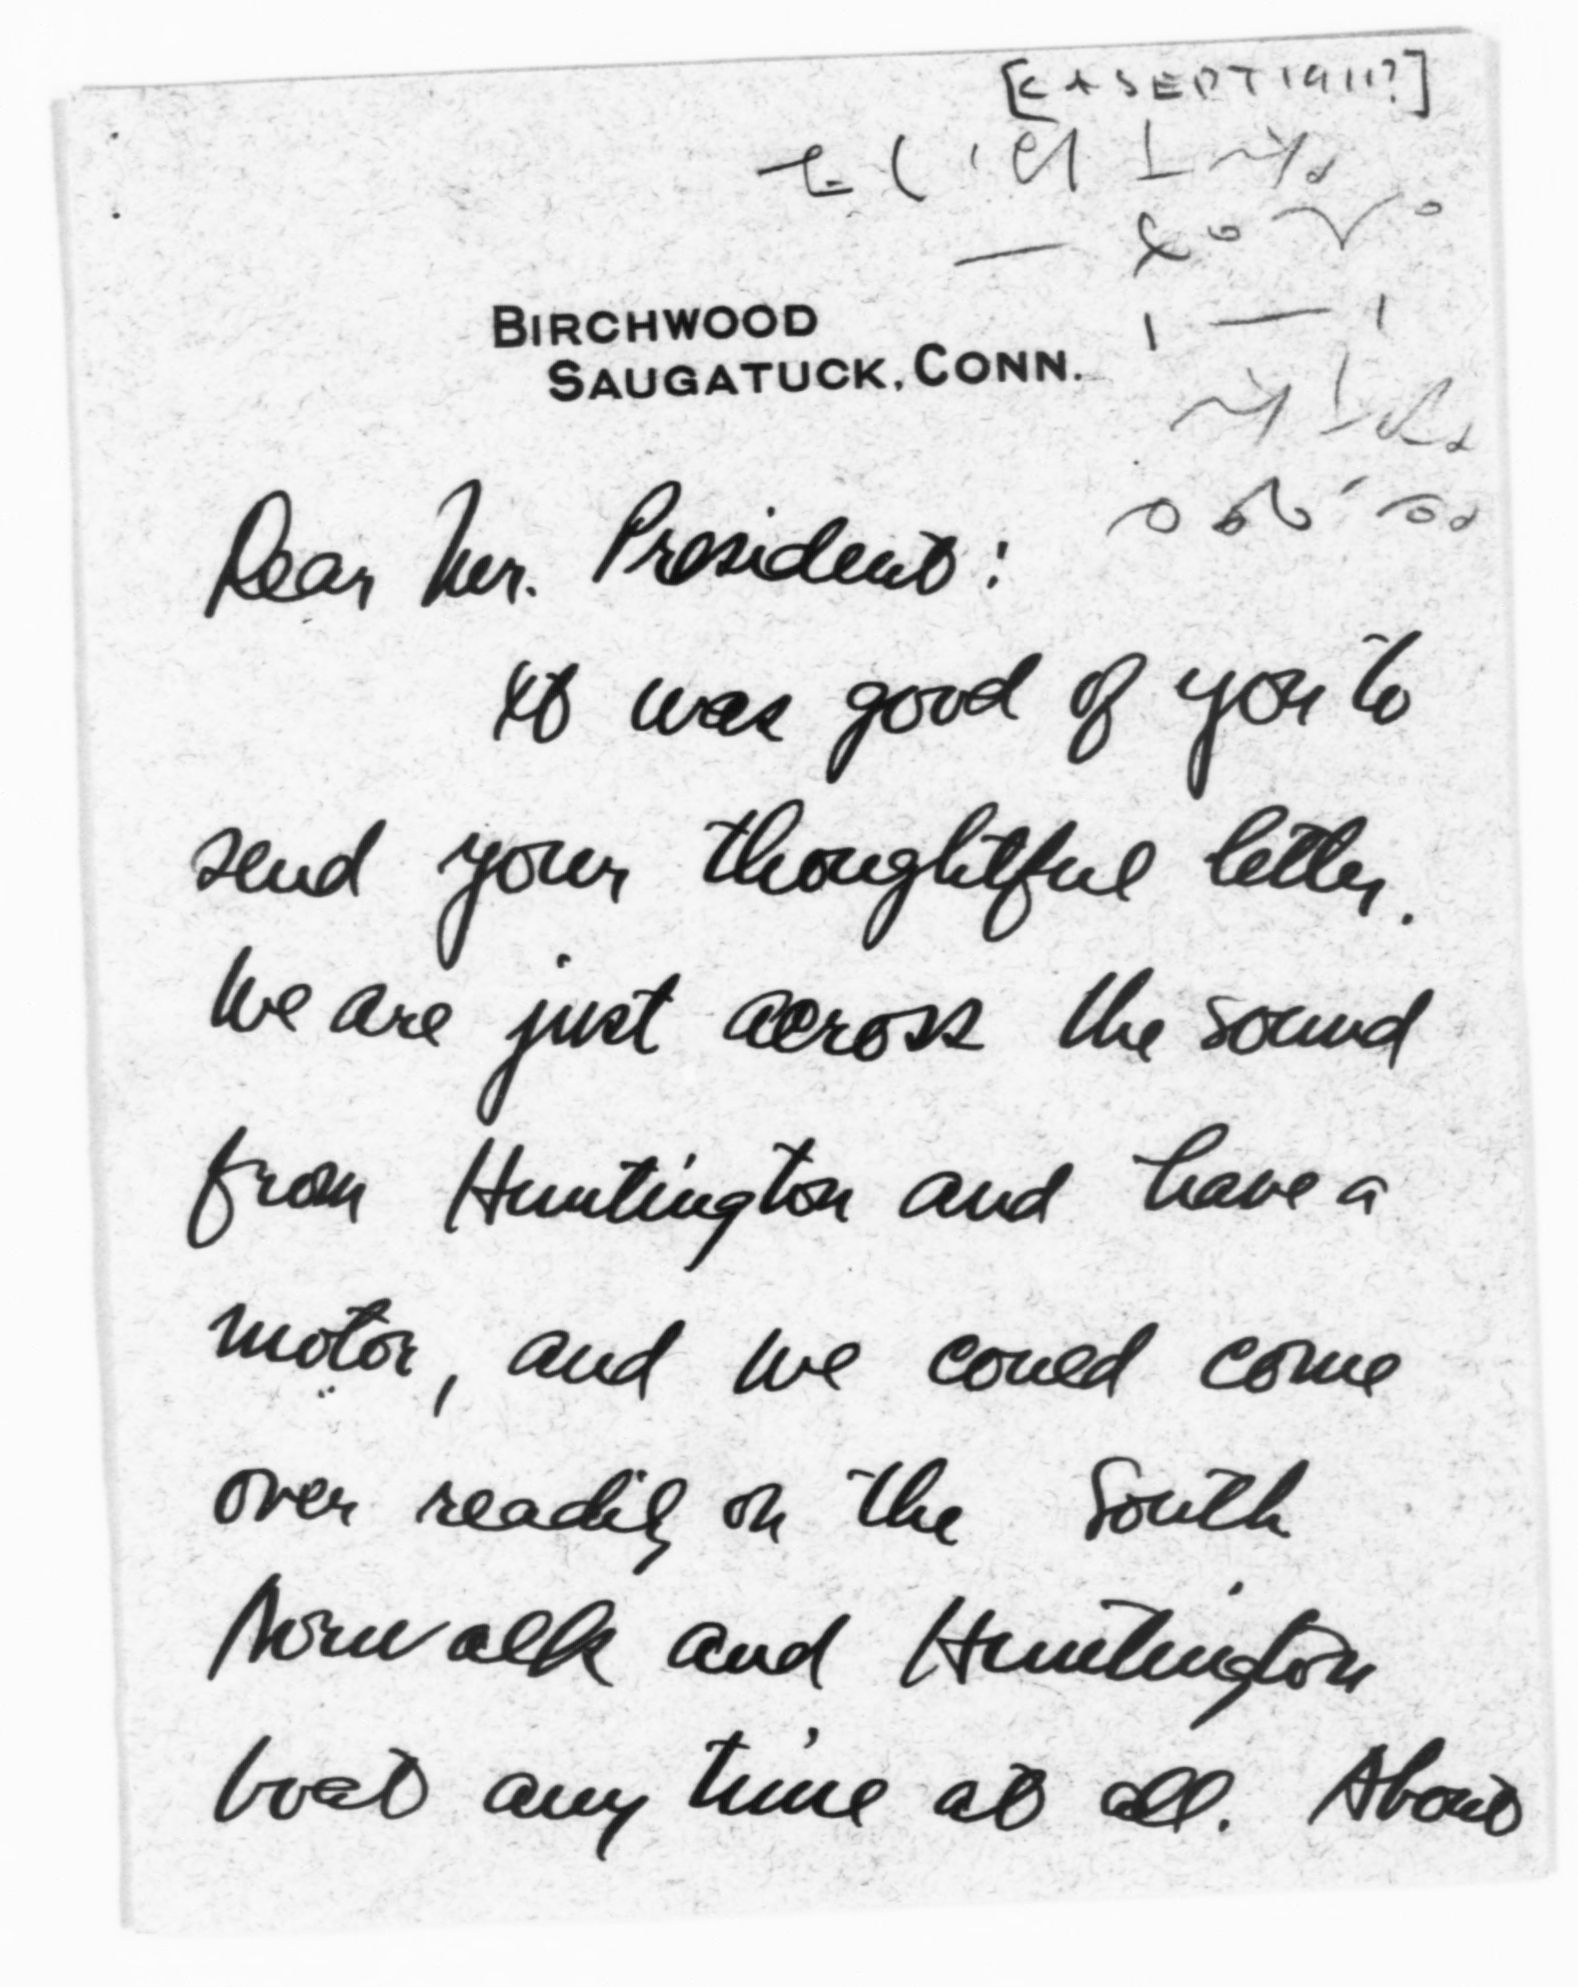 [CA SEPT 1911?]
BIRCHWOOD
SAUGATUCK, CONN.
Dear Mr. President:
It was good of you to
send your thoughtful letter.
We are just across the sound
from Huntington and have a
motor, and we could come
over readily on the South
Norwalk and Huntington
boat any time at all. About